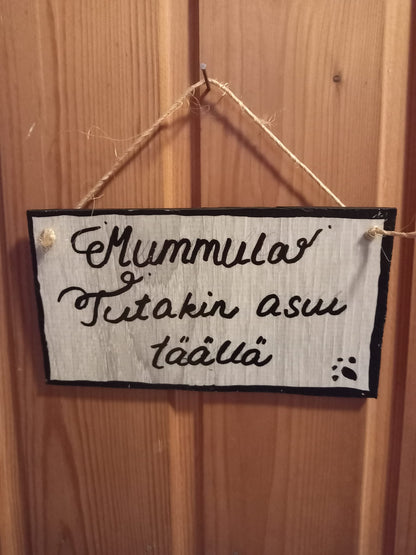 "Mummula"
Tutakin asuu
täällä